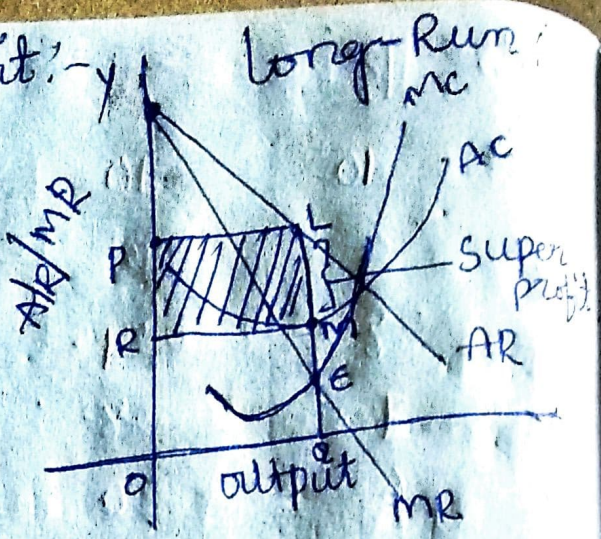 it:- Y Long-Run
MC
AC
AR/MR
L
P
Super
Profit
M
R
AR
E
Q
O output
MR